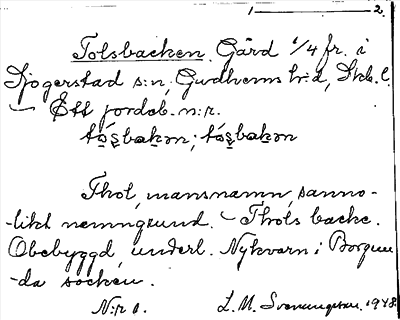 1 — 2.
Tolsbacken. Gård 1/4 fr. i
Djogerstad s:n, Gudhems h:d, Skb. l.
— Ett jordeb. n:r.
Thol, mansnamn, sanno-
-likt nemngrund. — Thols backe.
Obebyggd, underl. Nykvarn i Borgun-
-da socken.
N:r 1. L. M. Svenungsson. 1948.